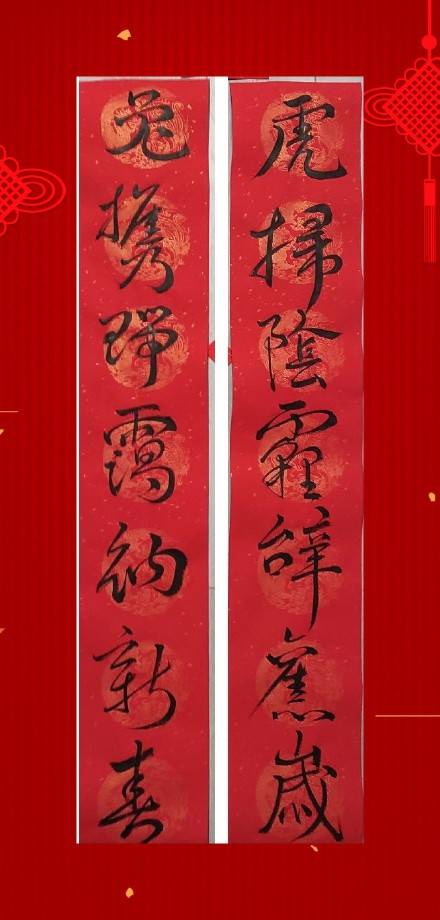 虎掃陰霾辭舊歲
兔携瑞靄納新春